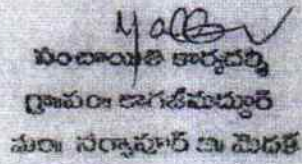 పంచాయితి కార్యదర్శి
గ్రామం॥ కాగజ్‌మద్దూర్
మం॥ నర్సాపూర్ జి॥ మెదక్